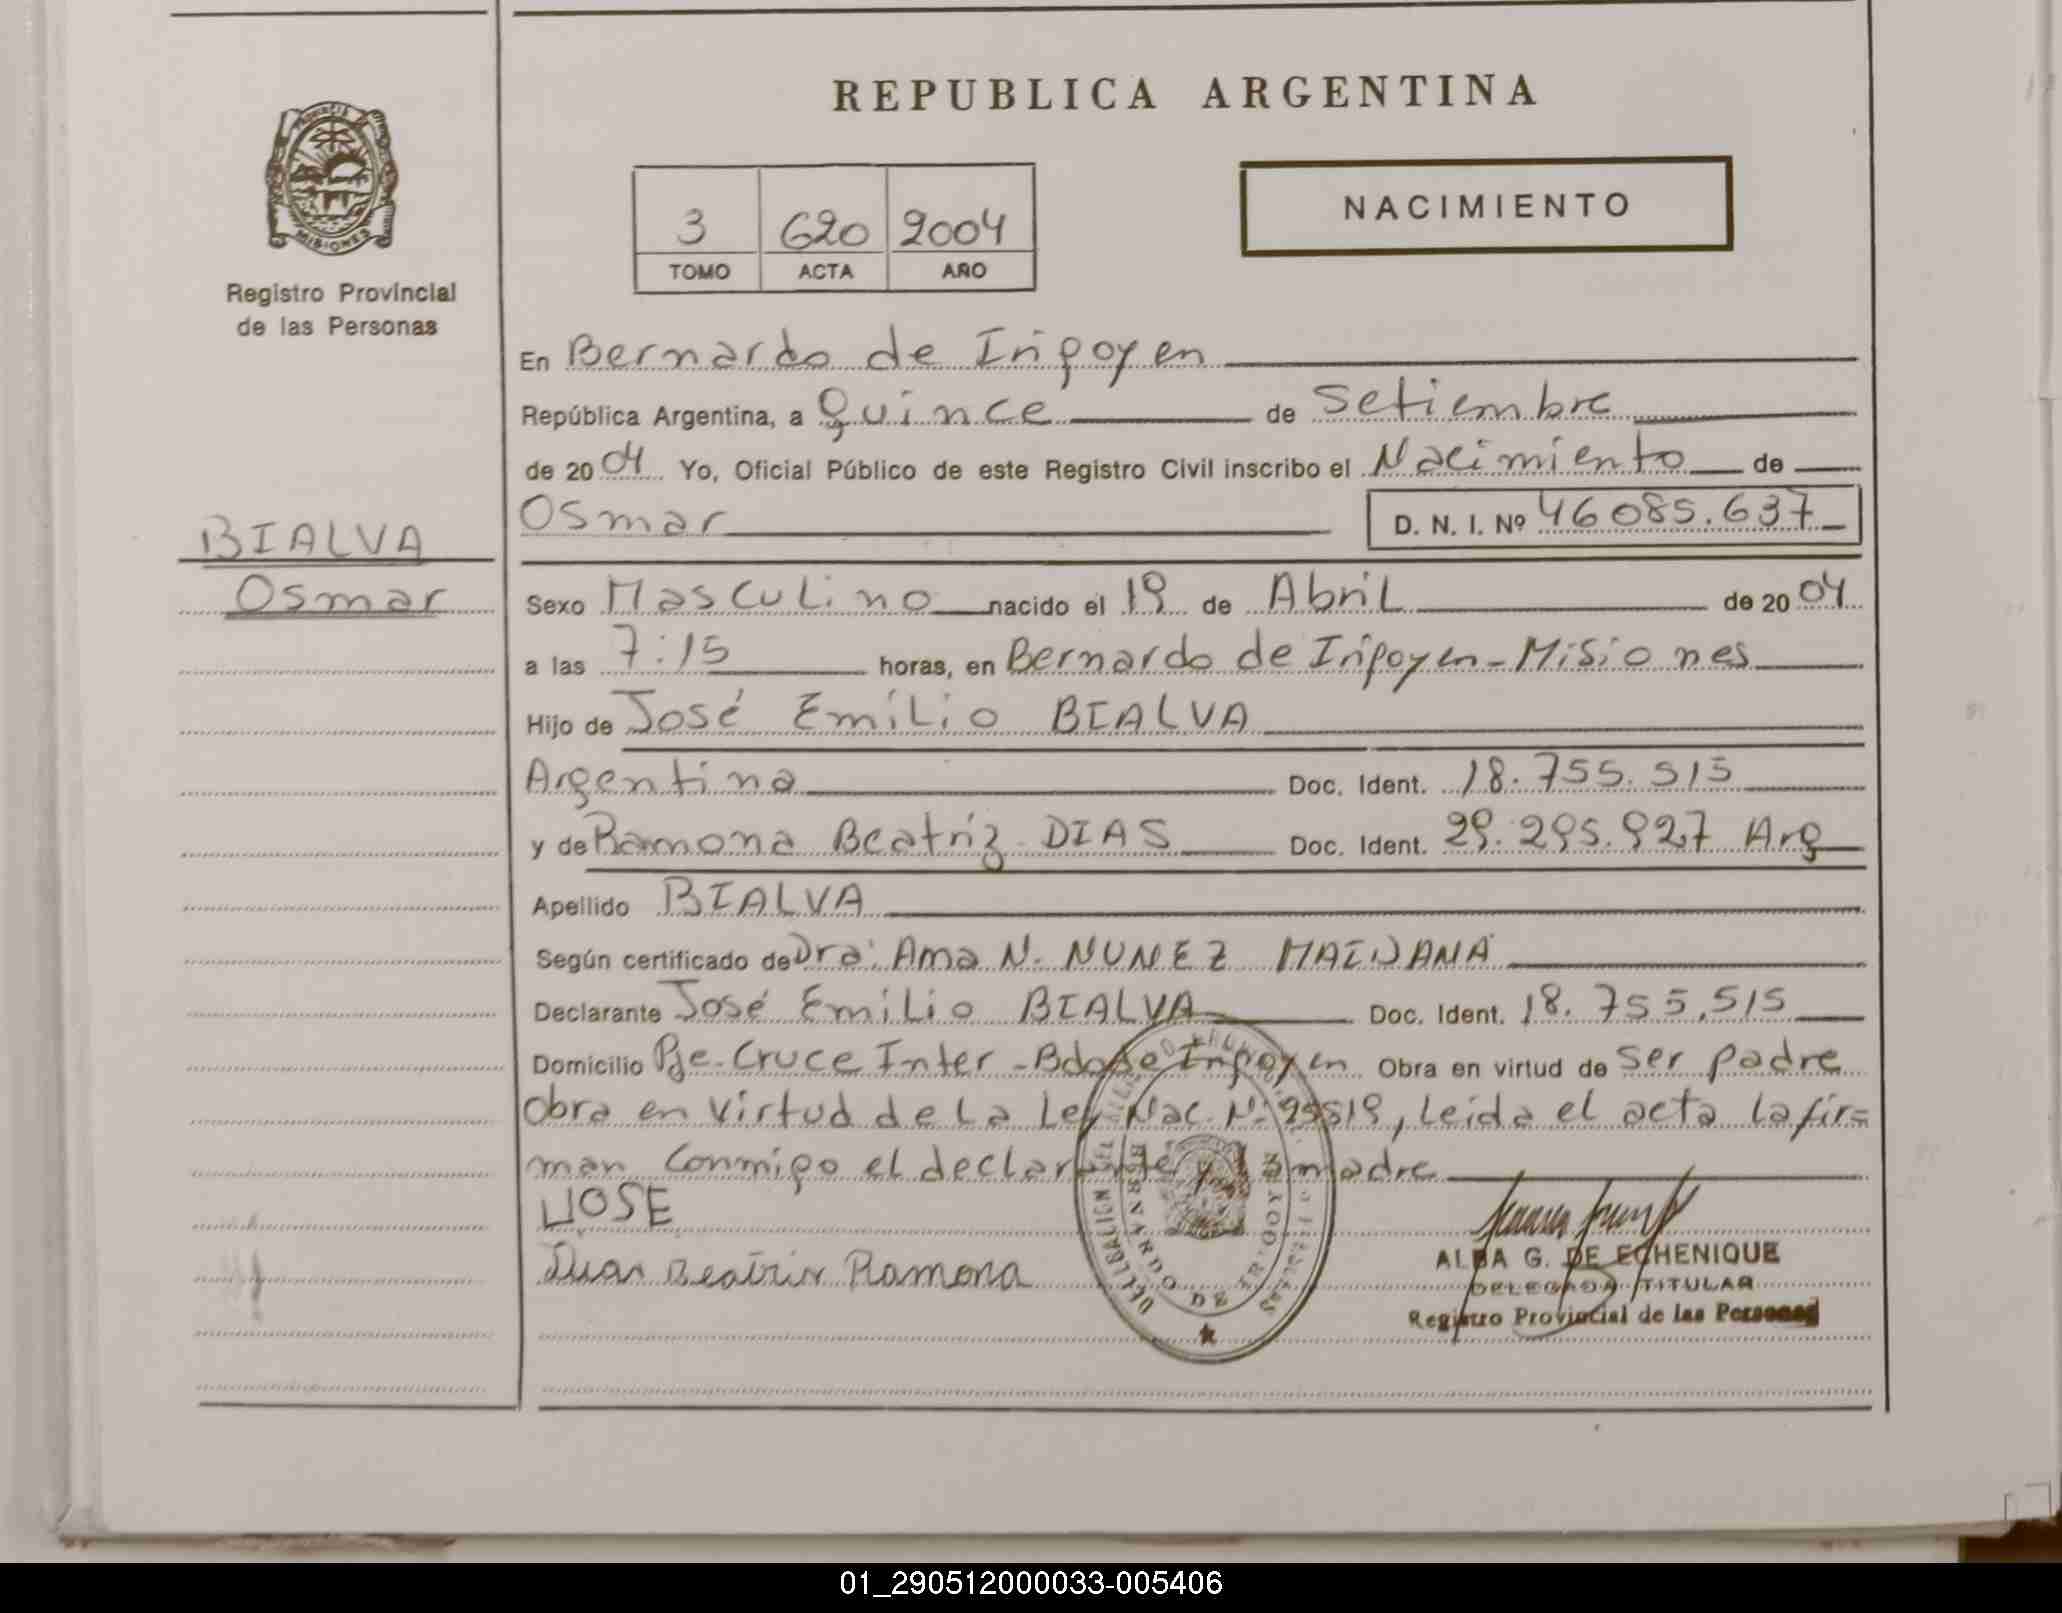 REPUBLICA ARGENTINA
PROVINCIA
MISIONES
Registro Provincial
de las Personas
3 620 2004
TOMO ACTA AÑO
NACIMIENTO
En Bernardo de Irigoyen
República Argentina, a quince de Setiembre
de 2004 Yo, Oficial Público de este Registro Civil inscribo el Nacimiento de
Osmar D. N. I. Nº 46085.637
BIALVA
Osmar
Sexo Masculino nacido el 19 de Abril de 2004
a las 7:15 horas, en Bernardo de Irigoyen - Misiones
Hijo de José Emilio BIALVA
Argentina Doc. Ident. 18.755.515
y de Ramona Beatriz DIAS Doc. Ident. 29.295.927 Arg
Apellido BIALVA
Según certificado de Dra: Ama N. NUNEZ MAIDANA
Declarante José Emilio BIALVA Doc. Ident. 18.755.515
Domicilio Pje. Cruce Inter - Bdo de Irigoyen Obra en virtud de ser padre
Obra en virtud de la Ley Nac. Nº 25819, leída el acta la fir=
man conmigo el declarante y la madre
JOSE
Dias Beatriz Ramona
BERNARDO DE IRIGOYEN
ALBA G. DE ECHENIQUE
DELEGADA TITULAR
Registro Provincial de las Personas
01_290512000033-005406